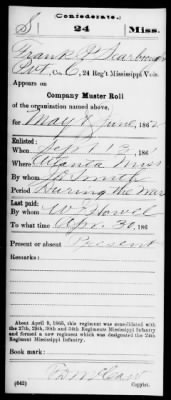 Confederate.
S 24 Miss.
Frank P
Pvt, Co. C, 24 Reg't Mississippi Vols.
Appears on
Company Muster Roll
of the organization named above,
for May & June, 1862
Enlisted:
When Sept 13, 186
Where Atlanta Miss
By whom Smith
Period During the War
Last paid:
By whom W
To what time Apr. 30, 186
Present or absent Present
Remarks:
About April 9, 1865, this regiment was consolidated with
the 27th, 29th, 30th and 34th Regiments Mississippi Infantry
and formed a new regiment which was designated the 24th
Regiment Mississippi Infantry.
Book mark:
(642) Copyist.